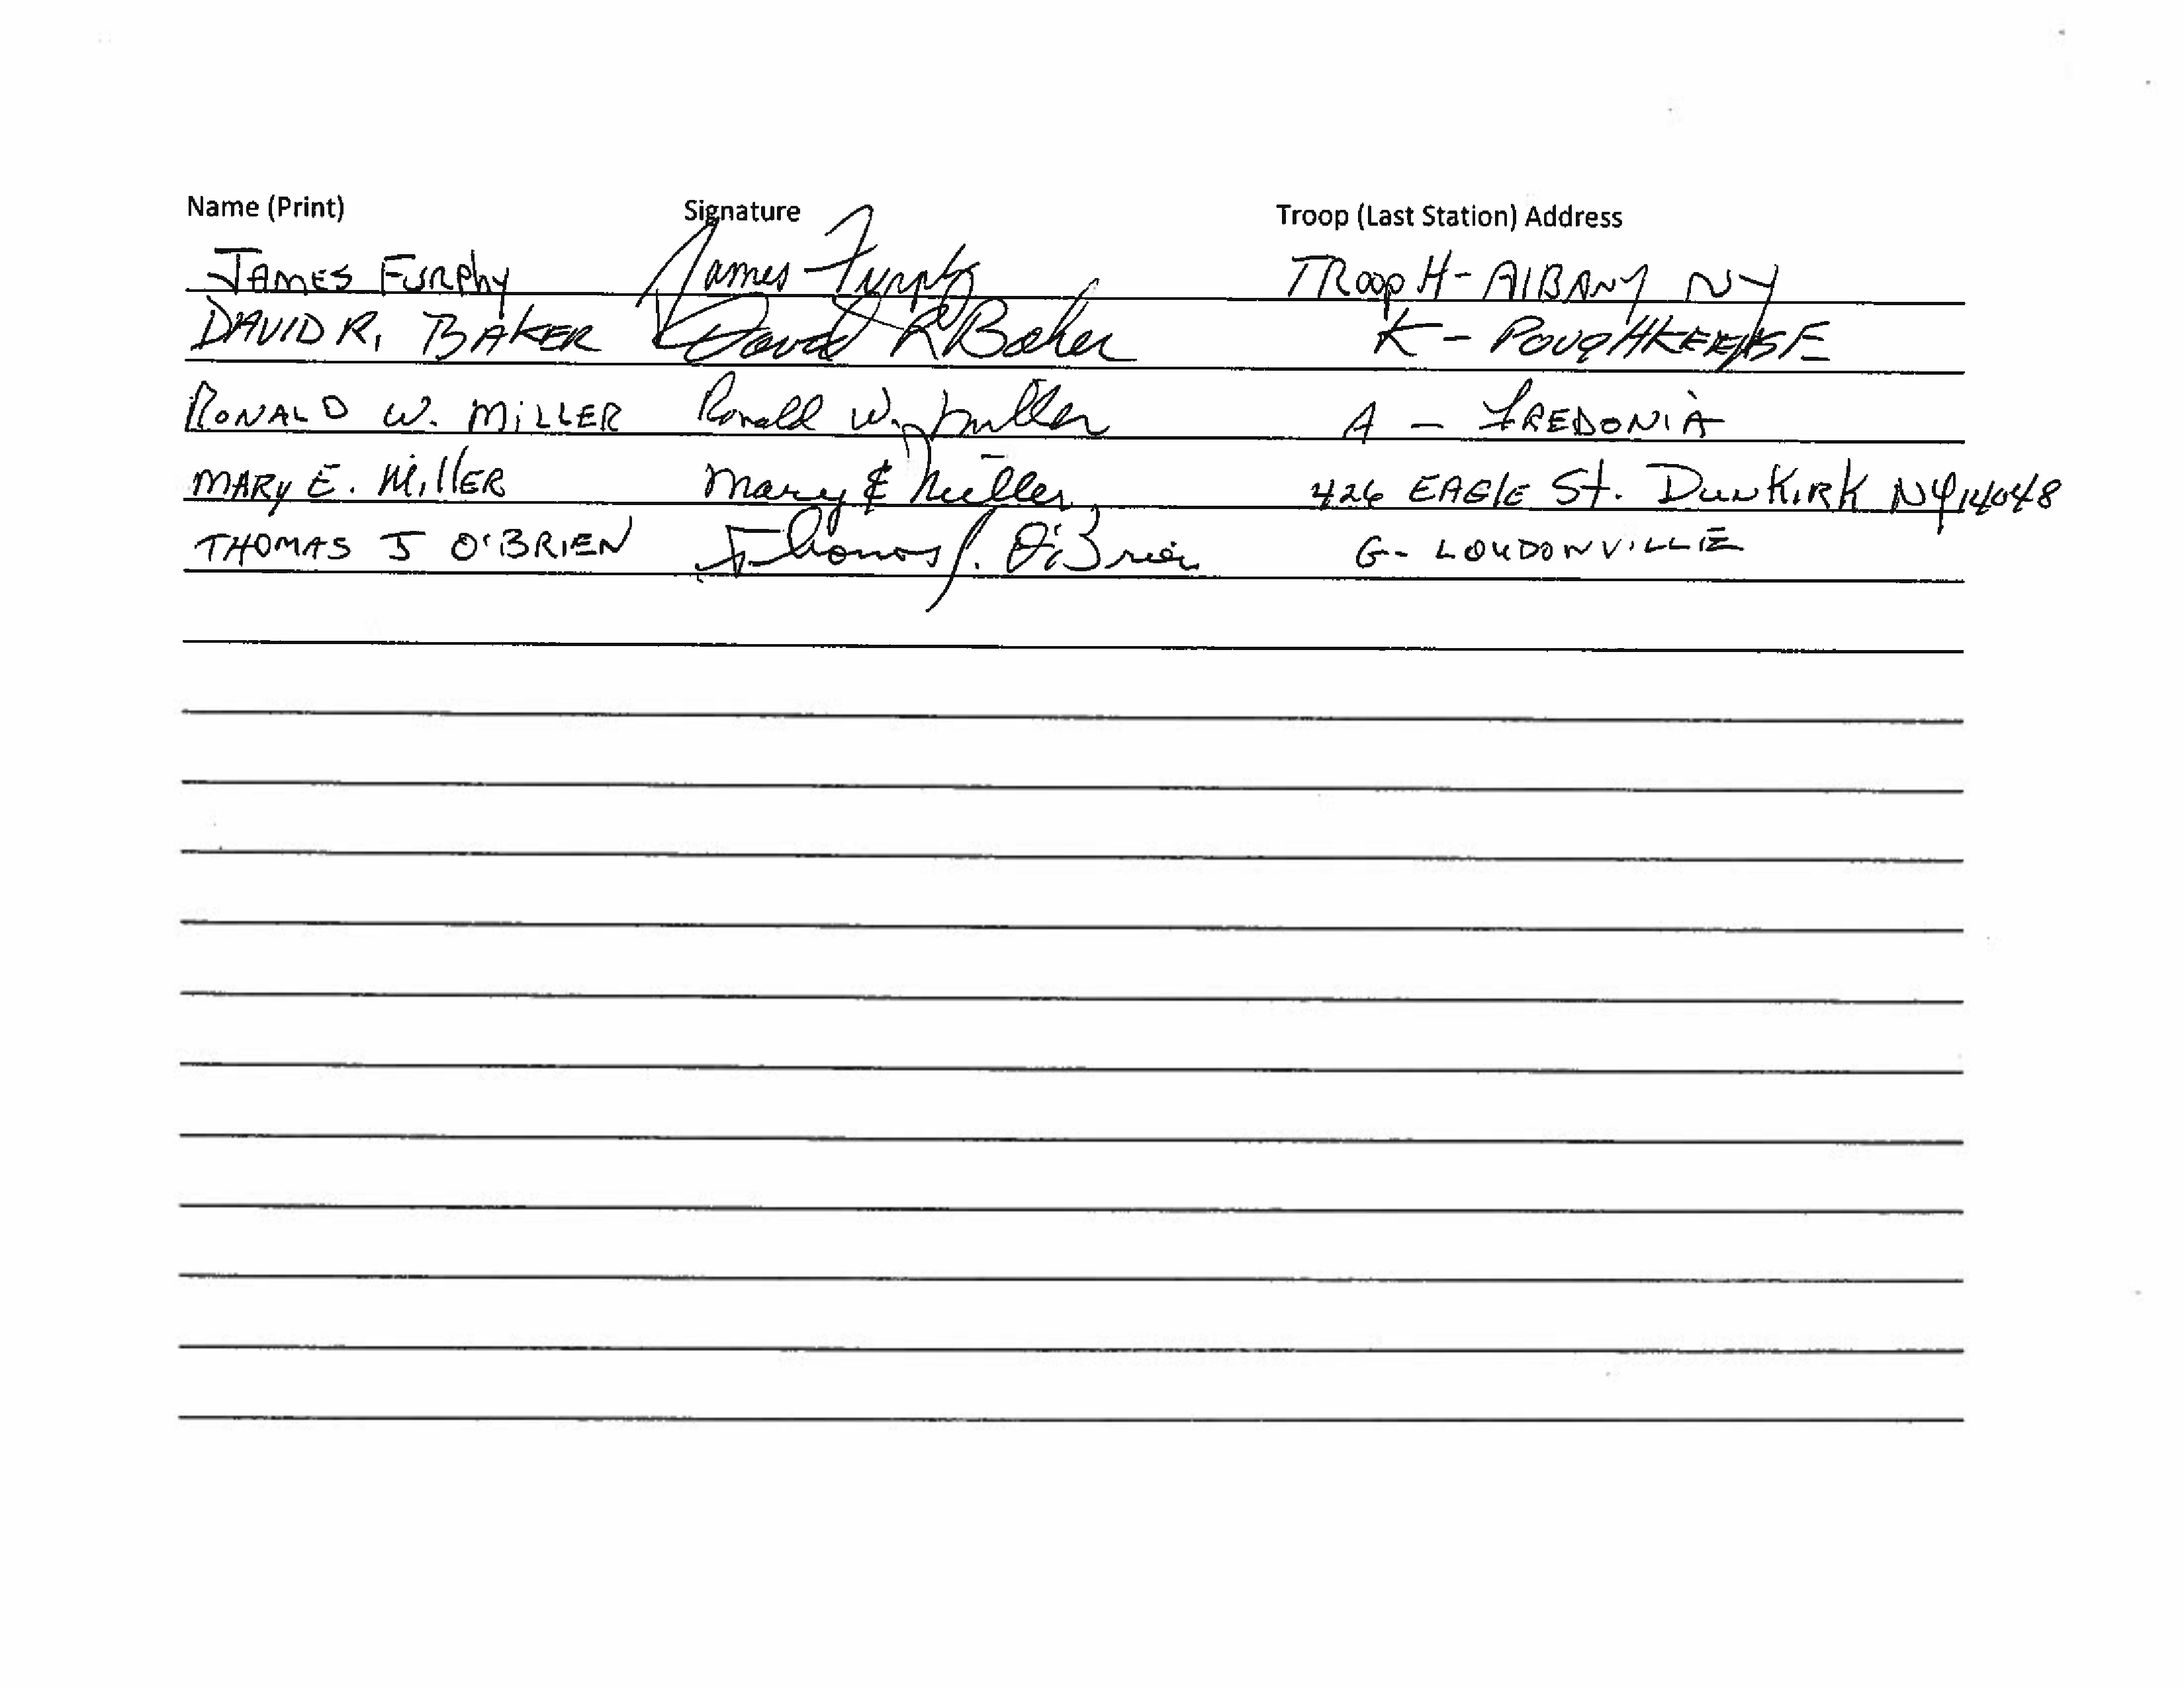 Name (Print) Signature Troop (Last Station) Address
JAMES FURPhy James Furphy TROOP H - AlBANY NY
DAVID R. BAKER David R Baker K - POUGHKEEPSE
RONALD W. MiLLER Ronald W. Miller A - FREDONIA
MARY E. MillER Mary E Miller 426 EAGlE St. DunKiRK NY 14048
THOMAS J O'BRIEN Thomas J. O'Brien G - LOUDONVILLE